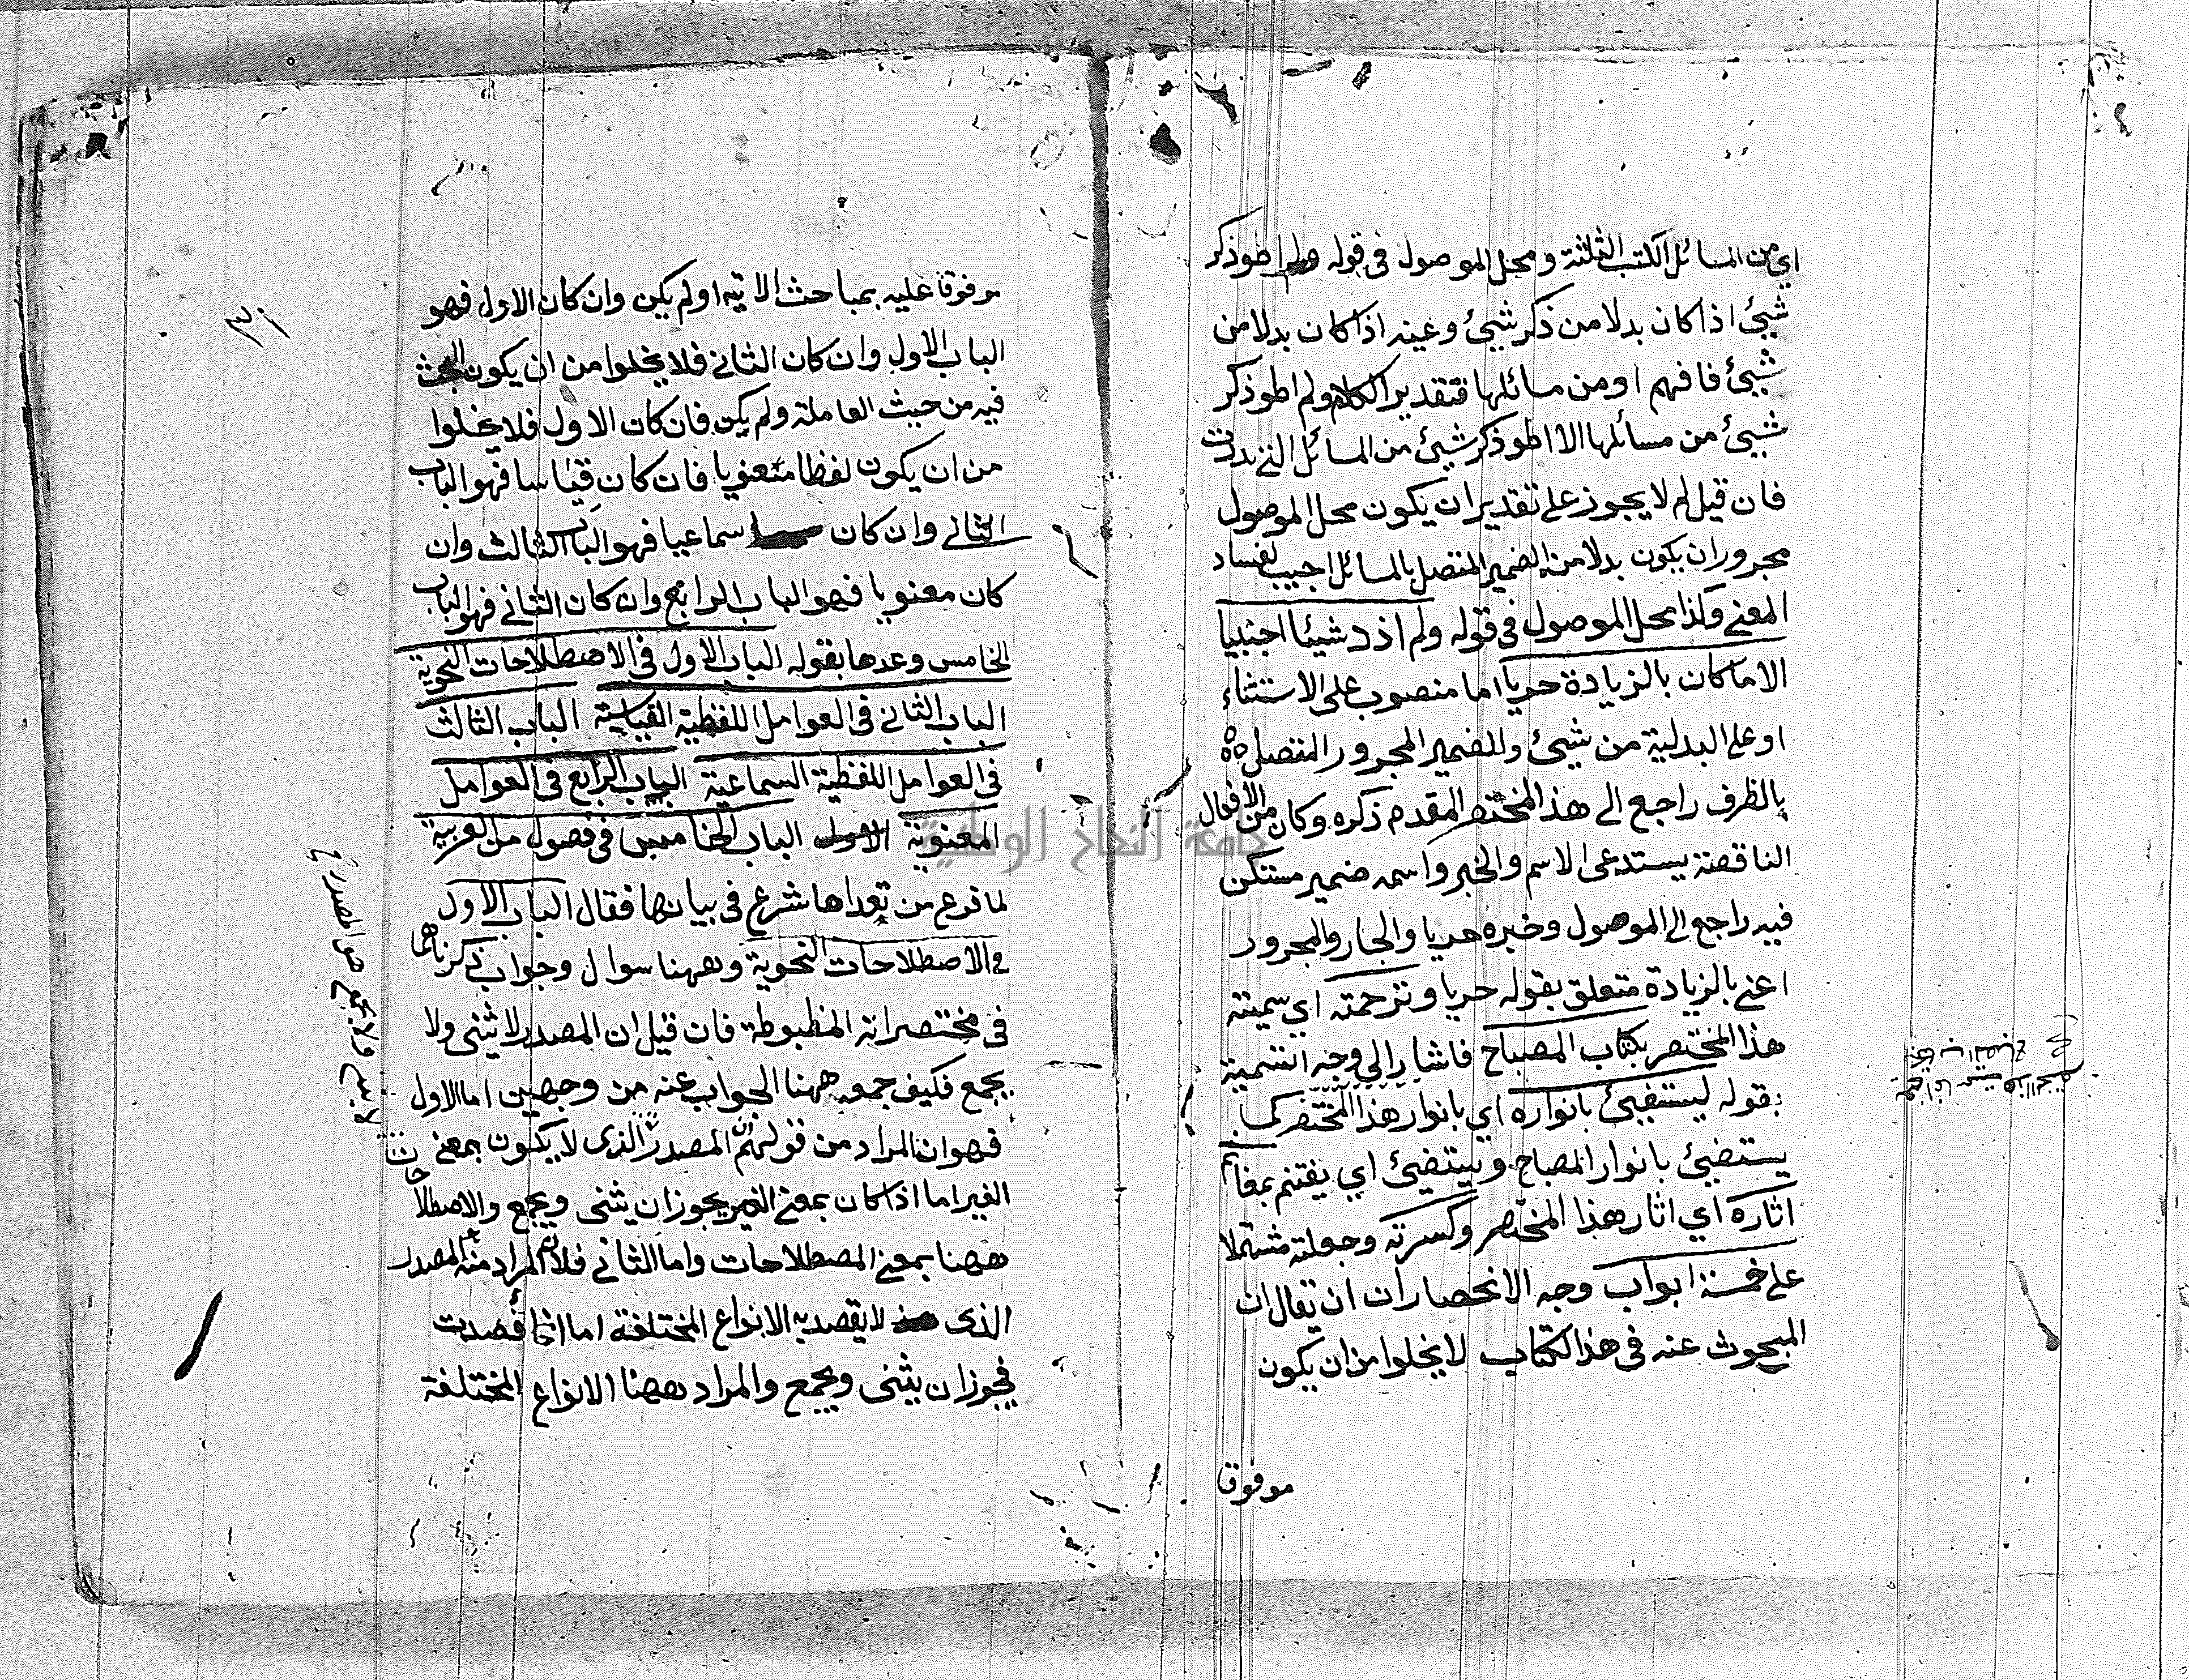 اي من المسائل الكتب الثلثة ومحل الموصول في قوله ولم اطو ذكر
شيئ اذا كان بدلا من ذكر شيئ وعينه اذا كان بدلا من
شيئ فافهم او من مسائلها فتقدير الكلام ولم اطو ذكر
شيئ من مسائلها الا اطو ذكر شيئ من المسائل التي ندرت
فان قيل لم لا يجوز على تقدير ان يكون محل الموصول
مجرور ان يكون بدلا من الضمير المتصل بالمسائل اجيب لفساد
المعنى وكذا محل الموصول في قوله ولم ازد شيئا اجنبيا
الا ما كان بالزيادة حريا اما منصوب على الاستثناء
او على البدلية من شيئ والضمير المجرور المتصل
بالظرف راجع الى هذا المختصر المقدم ذكره وكان من الافعال
الناقصة يستدعى الاسم والخبر واسمه ضمير مستكن
فيه راجع الى الموصول وخبره حريا والجار والمجرور
اعني بالزيادة متعلق بقوله حريا وترجمته اي سميته
هذا المختصر بكتاب المصباح فاشار الى وجه التسمية
بقوله ليستضيئ بانواره اي بانوار هذا المختصر كما
يستضيئ بانوار المصباح ويستضيئ اي يغتنم بمغانم
اثاره اي اثار هذا المختصر وكسرته وجعلته مشتملا
على خمسة ابواب وجه الانحصار ان يقال ان
المبحوث عنه في هذا الكتاب لا يخلوا من ان يكون
موقوف
موقوفا عليه بمباحث الاتية او لم يكن وان كان الاول فهو
الباب الاول وان كان الثاني فلا يخلوا من ان يكون البحث
فيه من حيث العاملة ولم يكن فان كان الاول فلا يخلوا
من ان يكون لفظا معنويا فان كان قياسا فهو الباب
الثاني وان كان سماعيا فهو الباب الثالث وان
كان معنويا فهو الباب الرابع وان كان الثاني فهو الباب
الخامس وعدها بقوله الباب الاول في الاصطلاحات النحوية
الباب الثاني في العوامل اللفظية القياسية الباب الثالث
في العوامل اللفظية السماعية الباب الرابع في العوامل
المعنوية الباب الخامس في فصول من العربية
لما فرغ من تعدادها شرع في بيانها فقال الباب الاول
في الاصطلاحات النحوية وههنا سوال وجواب ذكرناهما
في مختصراته المظبوطة فان قيل ان المصدر لا يثنى ولا
يجمع فكيف جمعه ههنا الجواب عنه من وجهين اما الاول
فهو ان المراد من قولهم ان المصدر الذى لا يكون بمعنى
الغير اما اذا كان بمعنى الغير يجوز ان يثنى ويجمع والاصطلاحات
ههنا بمعنى المصطلاحات واما الثاني فلان المراد منه المصدر
الذى لا يقصد به الانواع المختلفة اما اذا قصدت
فيجوز ان يثنى ويجمع والمراد ههنا الانواع المختلفة
لا يثنى ولا يجمع هو المصدر
جامعة النجاح الوطنية